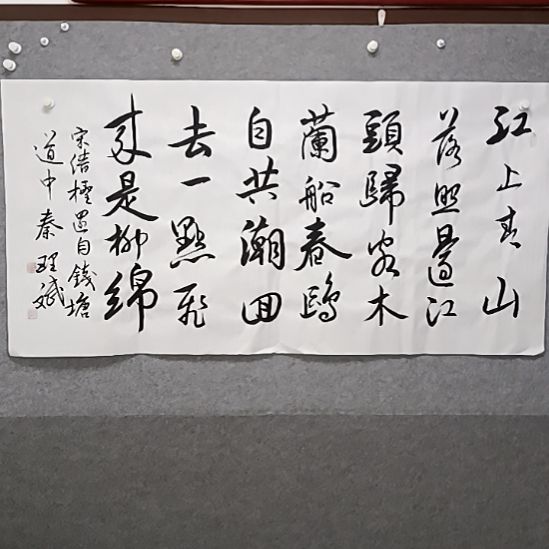 江上青山
落照邊江
頭歸客木
蘭船春鷗
自共潮回
去一點飛
來是柳綿
宋僧還自錢塘
道中秦理斌